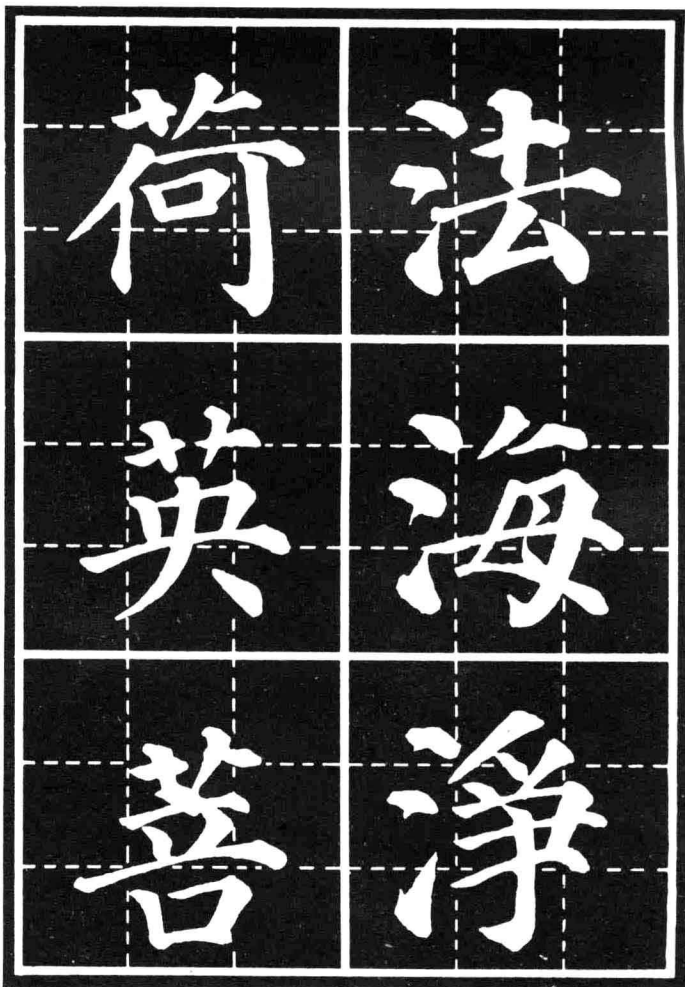 法海淨
荷英菩